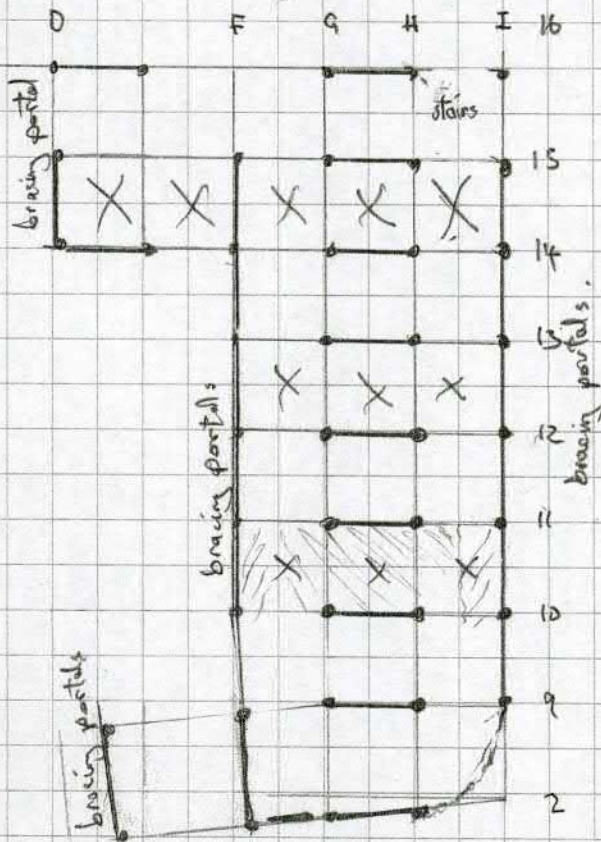 D F G H I 16
stairs
bracing portal
15
14
13
bracing portals.
12
bracing portals
11
10
bracing portals
9
2